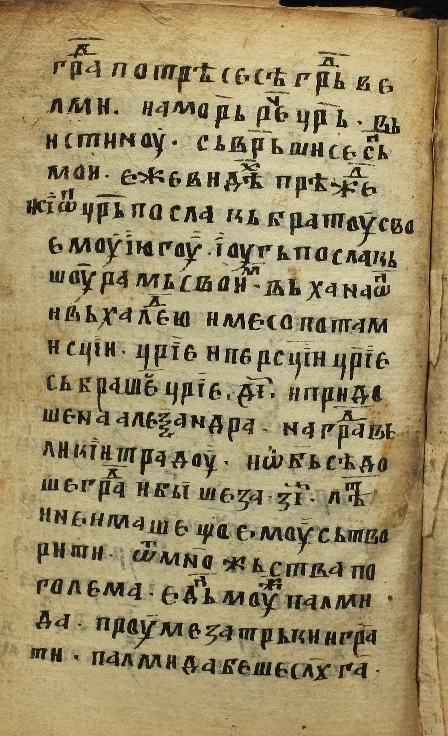 гра҇ⷣ потрѣсесѣ гръⷣ ве
лми. наморь реⷱ црь. въ
истиноу. съврьшисесьⷩ
мои. ежевидѣⷯ прѣжⷣе
жіѿⷩ црь посла къ братоу сво
емоу їюгоу. їоугь посла къ
шоурамь своиⷨ. въ ханаѿⷩ
и въ халⷣею и месопотам
и сціи. цріе и персціи цріе
съкраше цріе. ді. и придо
ше на алеѯандра. на граⷣ ве
ликїи традоу. и ѡбьсѣдо
ше граⷣ и быⷭ шеза. зі. лѣⷮ
и не имаше що емоу сьтво
рити. ѿ множьства по
голема. едьⷩ моуⷤ палми
да. проумеза трькии гра
ти. палмида беше слуга.